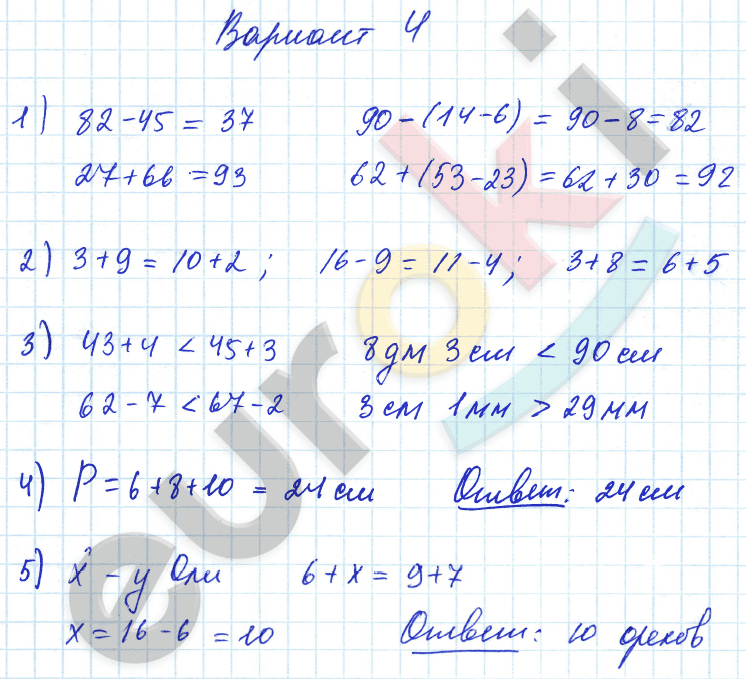 Вариант 4
1) 82-45 = 37 90-(14-6) = 90-8=82
27+66 =93 62+(53-23)=62+30=92
2) 3+9=10+2; 16-9=11-4; 3+8=6+5
3) 43+4 < 45+3 8дм 3см < 90см
62-7 < 67-2 3см 1мм > 29мм
4) P=6+8+10 = 24 см Ответ: 24 см
5) x - у Оли 6+x = 9+7
x=16-6 =10 Ответ: 10 орехов
euroki